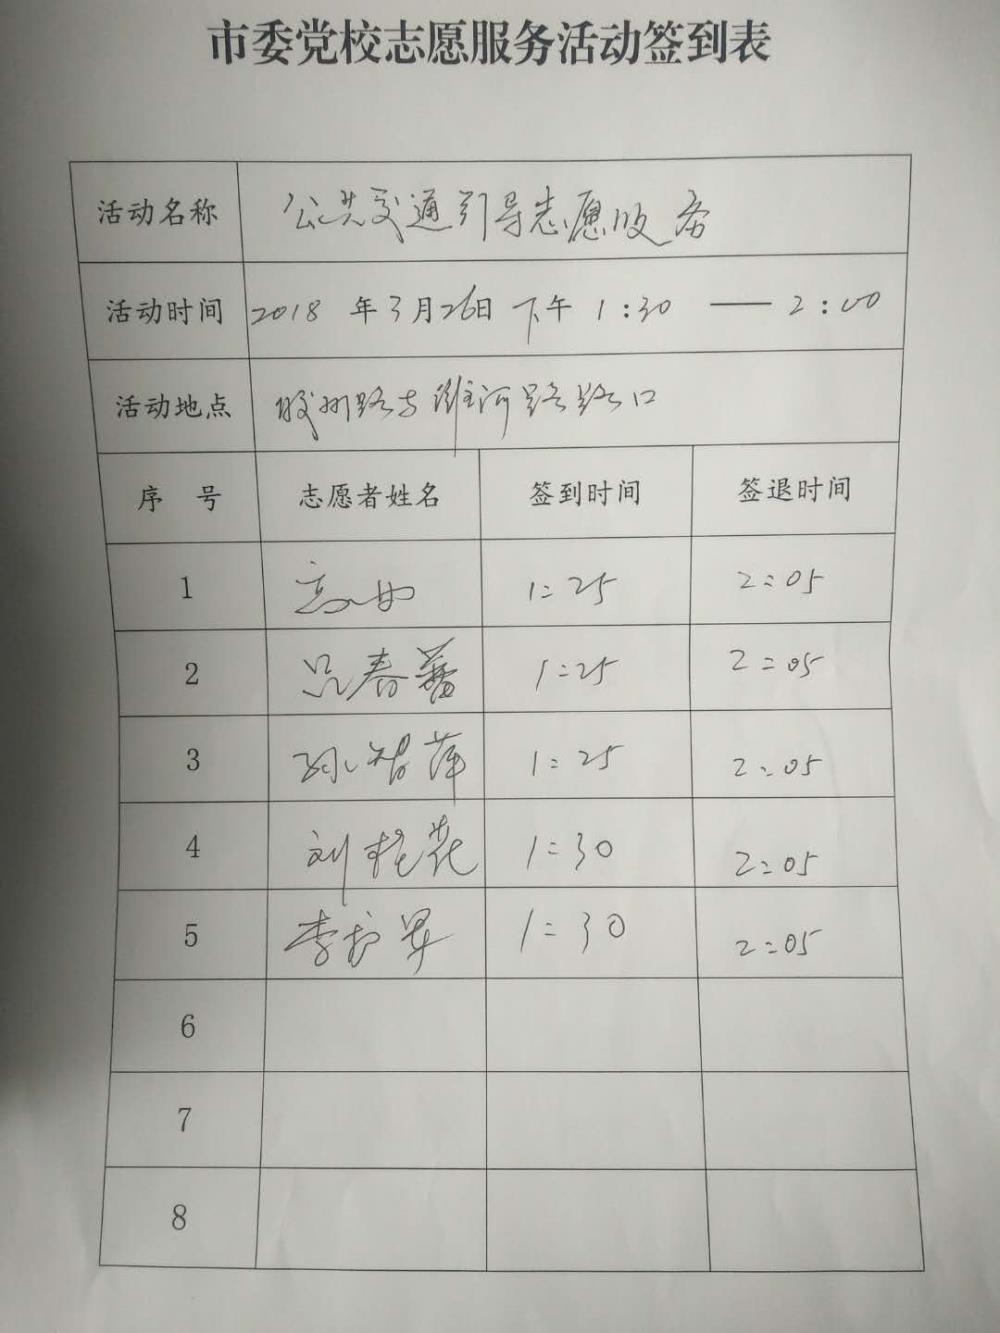 市委党校志愿服务活动签到表
活动名称 公共交通引导志愿服务
活动时间 2018 年3月26日 下午 1:30 —— 2:00
活动地点 胶州路与潍河路路口
序 号 志愿者姓名 签到时间 签退时间
1 1:25 2:05
2 吕春 1:25 2:05
3 孙智萍 1:25 2:05
4 刘桂花 1:30 2:05
5 李 1:30 2:05
6
7
8